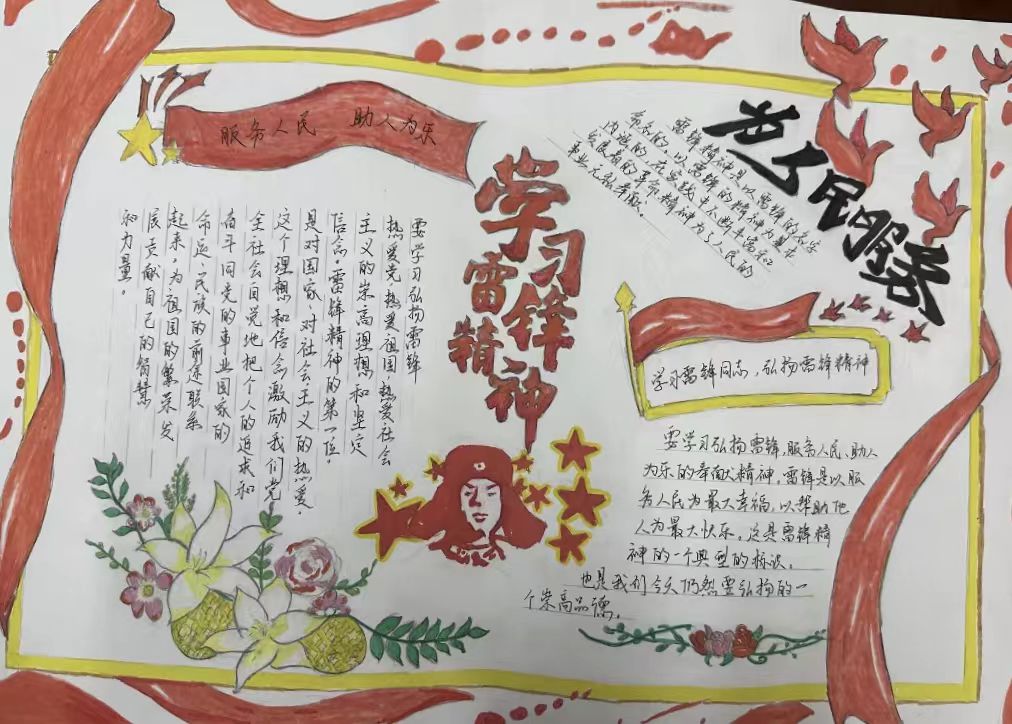 服务人民 助人为乐
学习
雷锋
精神
为人民服务
雷锋精神是以雷锋的名字
命名的，以雷锋的精神为基本
内涵的，在实践中不断丰富和
发展着的革命精神为人民的
事业无私奉献！
要学习弘扬雷锋
热爱党，热爱祖国，热爱社会
主义的崇高理想和坚定
信念。雷锋精神的第一位。
是对国家、对社会主义的热爱。
这个理想和信念激励我们党
全社会自觉地把个人的追求和
奋斗同党的事业国家的
命运、民族的前途联系
起来，为祖国的繁荣发
展贡献自己的智慧
和力量。
学习雷锋同志，弘扬雷锋精神
要学习弘扬雷锋，服务人民、助人
为乐的奉献精神，雷锋是以服
务人民为最大幸福，以帮助他
人为最大快乐。这是雷锋精
神的一个典型的标识。
也是我们今天仍然要弘扬的一
个崇高品德。